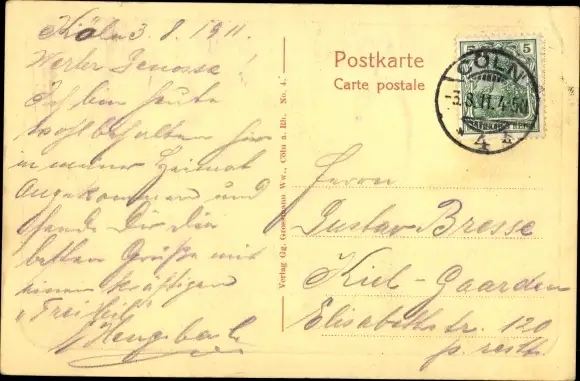 Köln 3.8.1911.
Werter Genosse!
Ich bin heute
wohlbehalten hier
in meiner Heimat
angekommen und
sende Dir die
besten Grüße mit
einem kräftigen
„Freiheil"
Hengsbach
Postkarte
Carte postale
Verlag Gg. Grossmann Ww., Cöln a. Rh. No. 4.
5 5
CÖLN
-3.8.11.4-5N
* 4 k
Herrn
Gustav Bresse
Kiel-Gaarden
Elisabethstr. 120
p. rechts